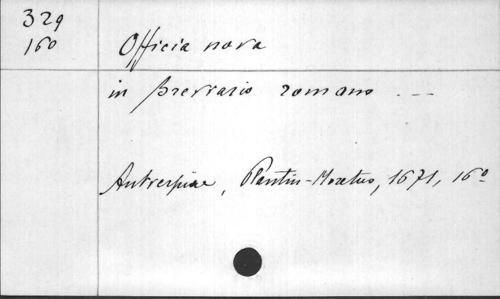 329
160
Officia nova
in Brevario romano ---
Antverpiae, Plantin-Moretus, 1671, 16°